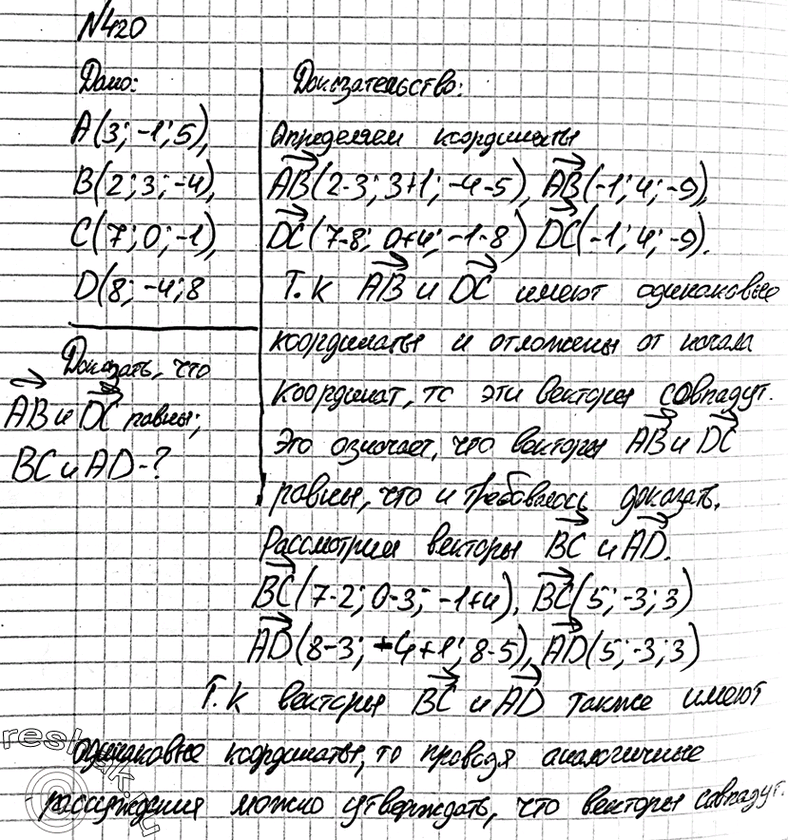 N420
Дано:
A(3; -1; 5),
B(2; 3; -4),
C(7; 0; -1),
D(8; -4; 8
Доказать, что
AB и DC равны;
BC и AD - ?
Доказательство:
Определяем координаты
AB(2-3; 3+1; -4-5), AB(-1; 4; -9),
DC(7-8; 0+4; -1-8) DC(-1; 4; -9).
Т.к AB и DC имеют одинаковые
координаты и отложены от начала
координат, то эти векторы совпадут.
Это означает, что векторы AB и DC
равны, что и требовалось доказать.
Рассмотрим векторы BC и AD.
BC(7-2; 0-3; -1+4), BC(5; -3; 3)
AD(8-3; -4+1; 8-5), AD(5; -3; 3)
Т.к векторы BC и AD также имеют
одинаковые координаты, то проводя аналогичные
рассуждения можно утверждать, что векторы совпадут.
reshak.ru